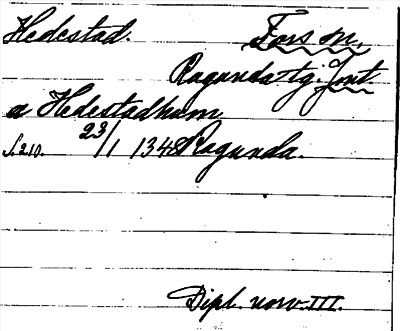 Hedestad. Fors sn.
Ragunda tg. Jmt.
a Hedestadhum
s. 210. 23/1 1348 Ragunda.
Dipl. norv. III.